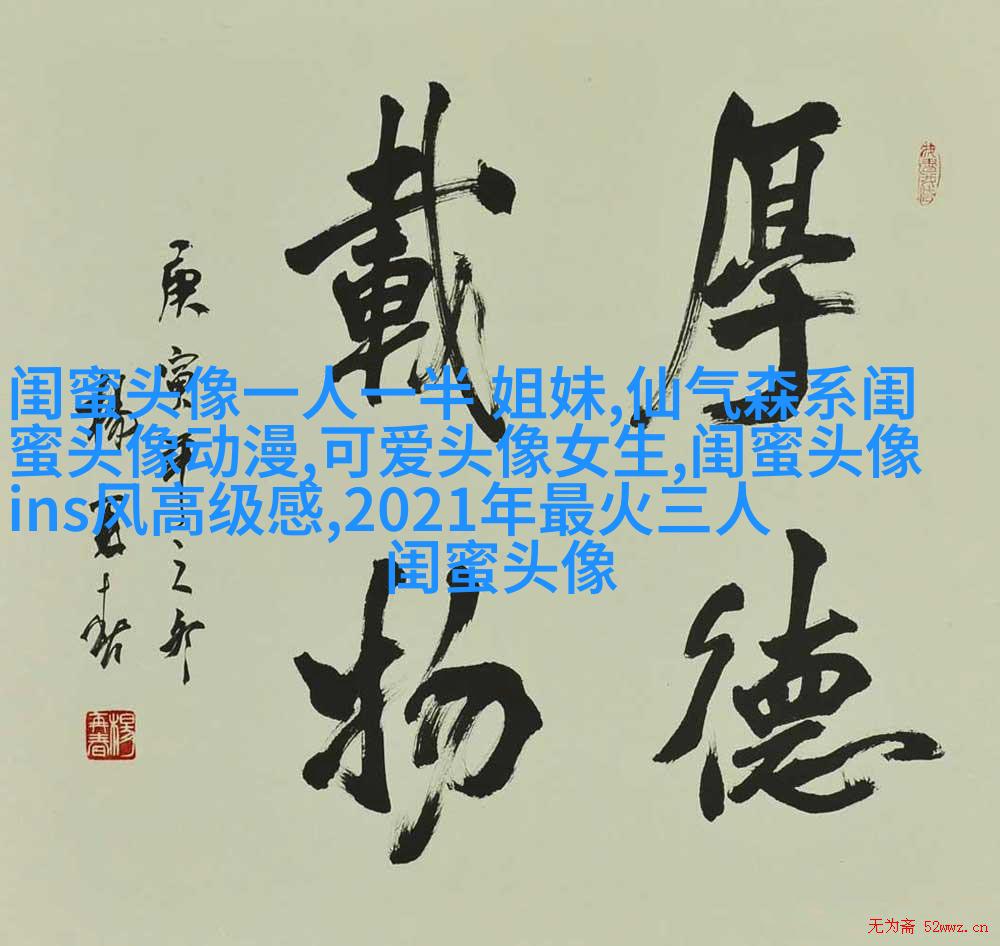 厚德
載物
庚寅
楊再春
楊再春
闺蜜头像一人一半 姐妹,仙气森系闺
蜜头像动漫,可爱头像女生,闺蜜头像
ins风高级感,2021年最火三人
闺蜜头像
无为斋 52wwz.cn